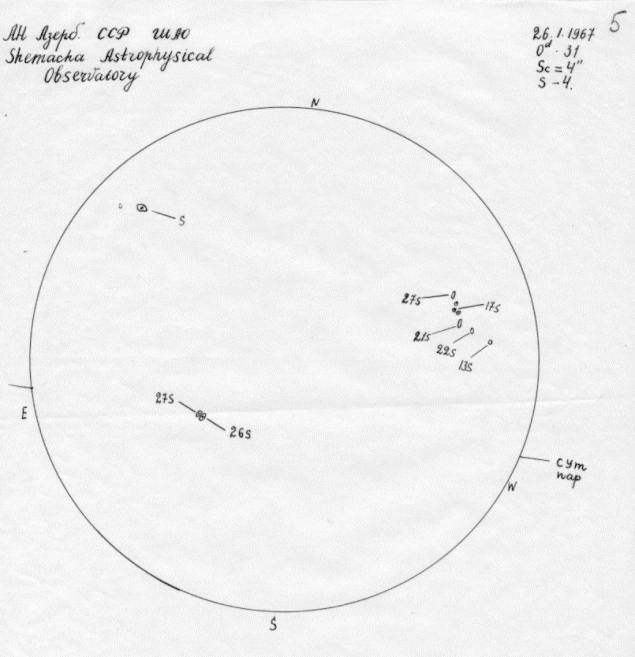 5
АН Азерб. ССР ШАО
Shemacha Astrophysical
Observatory
26.1.1967
0ᵈ.31
Sc = 4"
S - 4.
N
S
27S
17S
21S
22S
13S
27S
26S
E
W
сут
пар
S